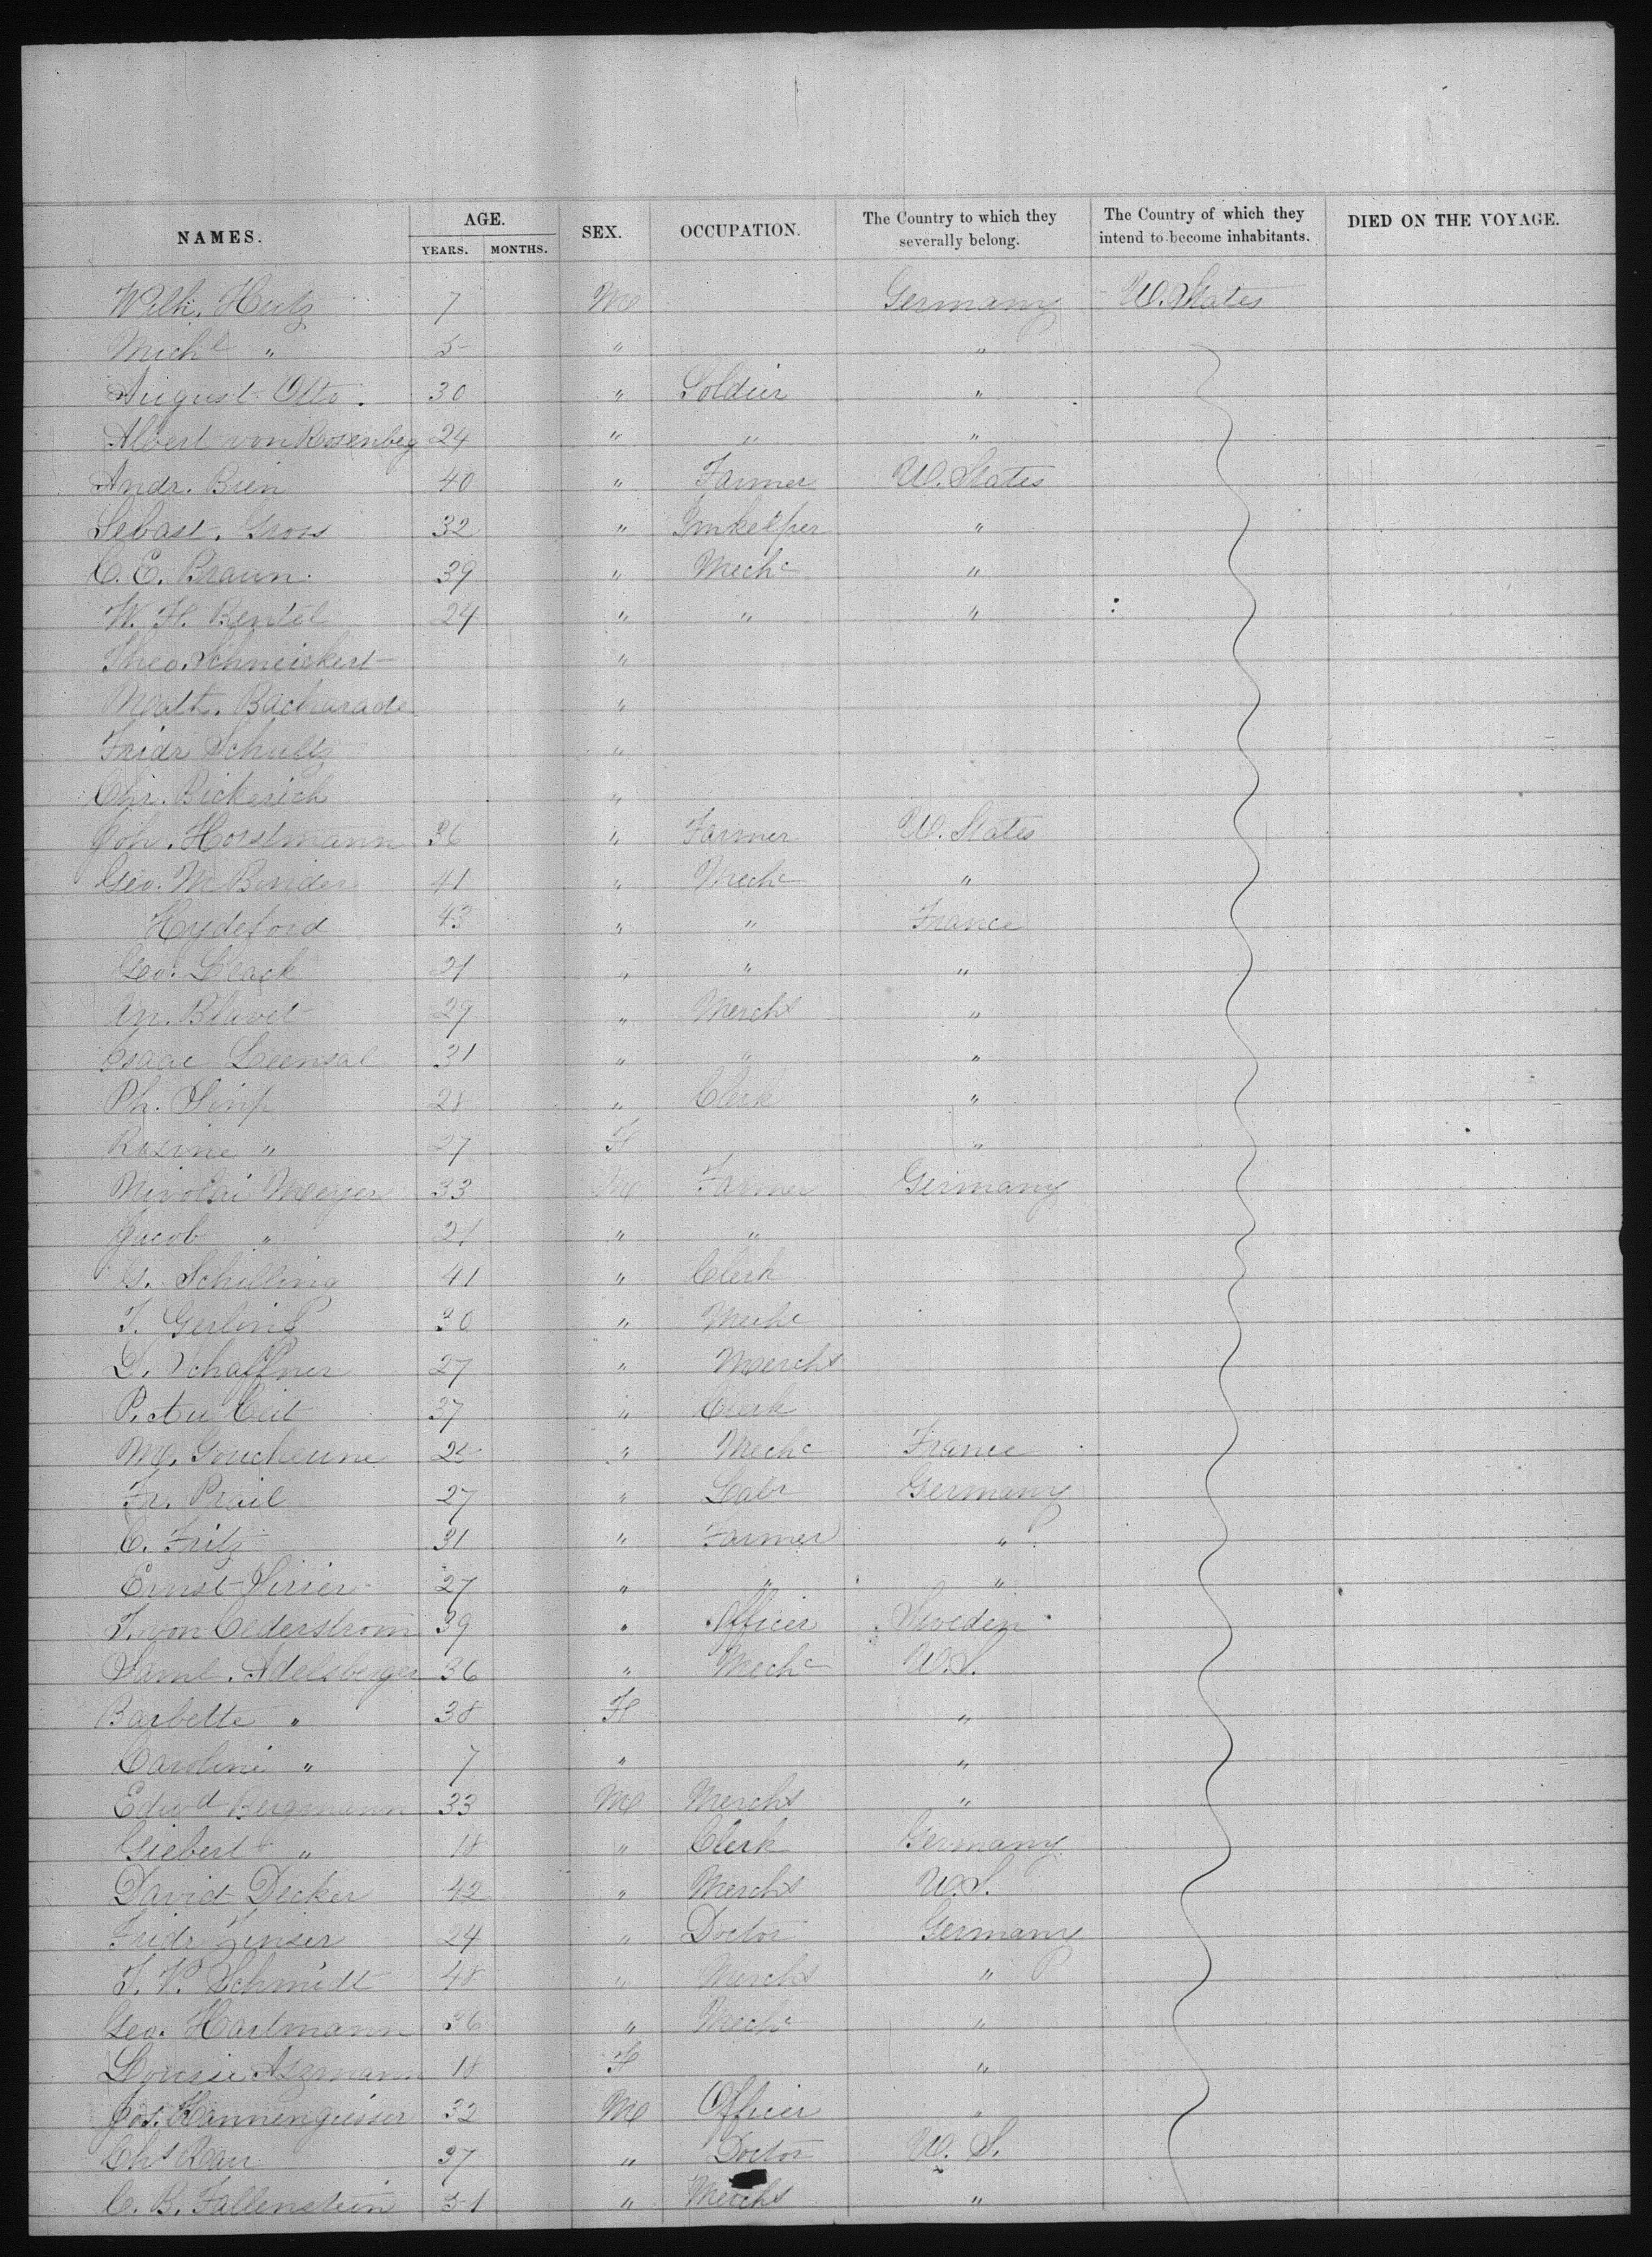 NAMES. AGE. SEX. OCCUPATION. The Country to which they severally belong. The Country of which they intend to become inhabitants. DIED ON THE VOYAGE.
YEARS. MONTHS.
Wilh. Hutz 7 M Germany U. States
Mich l " 5 " "
August Otto. 30 " Soldier "
Albert von Rosenbeg 24 " " "
Andr. Bien 40 " Farmer U. States
Sebast. Gross 32 " "
C. E. Braun. 39 " Mech c "
W. H. Bentel 24 " " "
Theo. Schneickert "
Math. Bacharade "
Fridr Schultz "
Chr. Bickerich "
Joh. Horstmann 36 " Farmer U. States
Geo. M Binder 41 " Mech c "
Hydeford 43 " " France
Geo. Leach 21 " " "
An. Blavet 29 " Mercht "
Isaac Leensal 31 " " "
Ph. 28 " Clerk "
Rosine " 27 F "
Nicolai Meyer 33 M Farmer Germany
Jacob " 21 " "
G. Schilling 41 " Clerk
T. Gerling 30 " Mechc
D. Schaffner 27 " Mercht
P. 37 " Clerk
M. Goucheune 25 " Mech c France
Fr. Prail 27 " Labr Germany
C. Fritz 31 " Farmer "
Ernst 27 " " "
T. von Cederstrom 39 " Officer Sweden
Saml. Adelsberger 36 " Mech c U.S.
Barbette " 38 F "
Caroline " 7 " "
Edw d Bergmann 33 M Mercht "
Giebert " 18 " Clerk Germany
David Decker 42 " Mercht U.S.
Fridr Zinser 24 " Doctor Germany
T. V. Schmidt 48 " Mercht "
Geo. Hartmann 36 " Mech c "
Louise Aszmann 18 F "
Jos. Kannengiesser 32 M Officer "
Ch s Rau 37 " Doctor U. S.
C. B. Fallenstein 51 " Mercht "